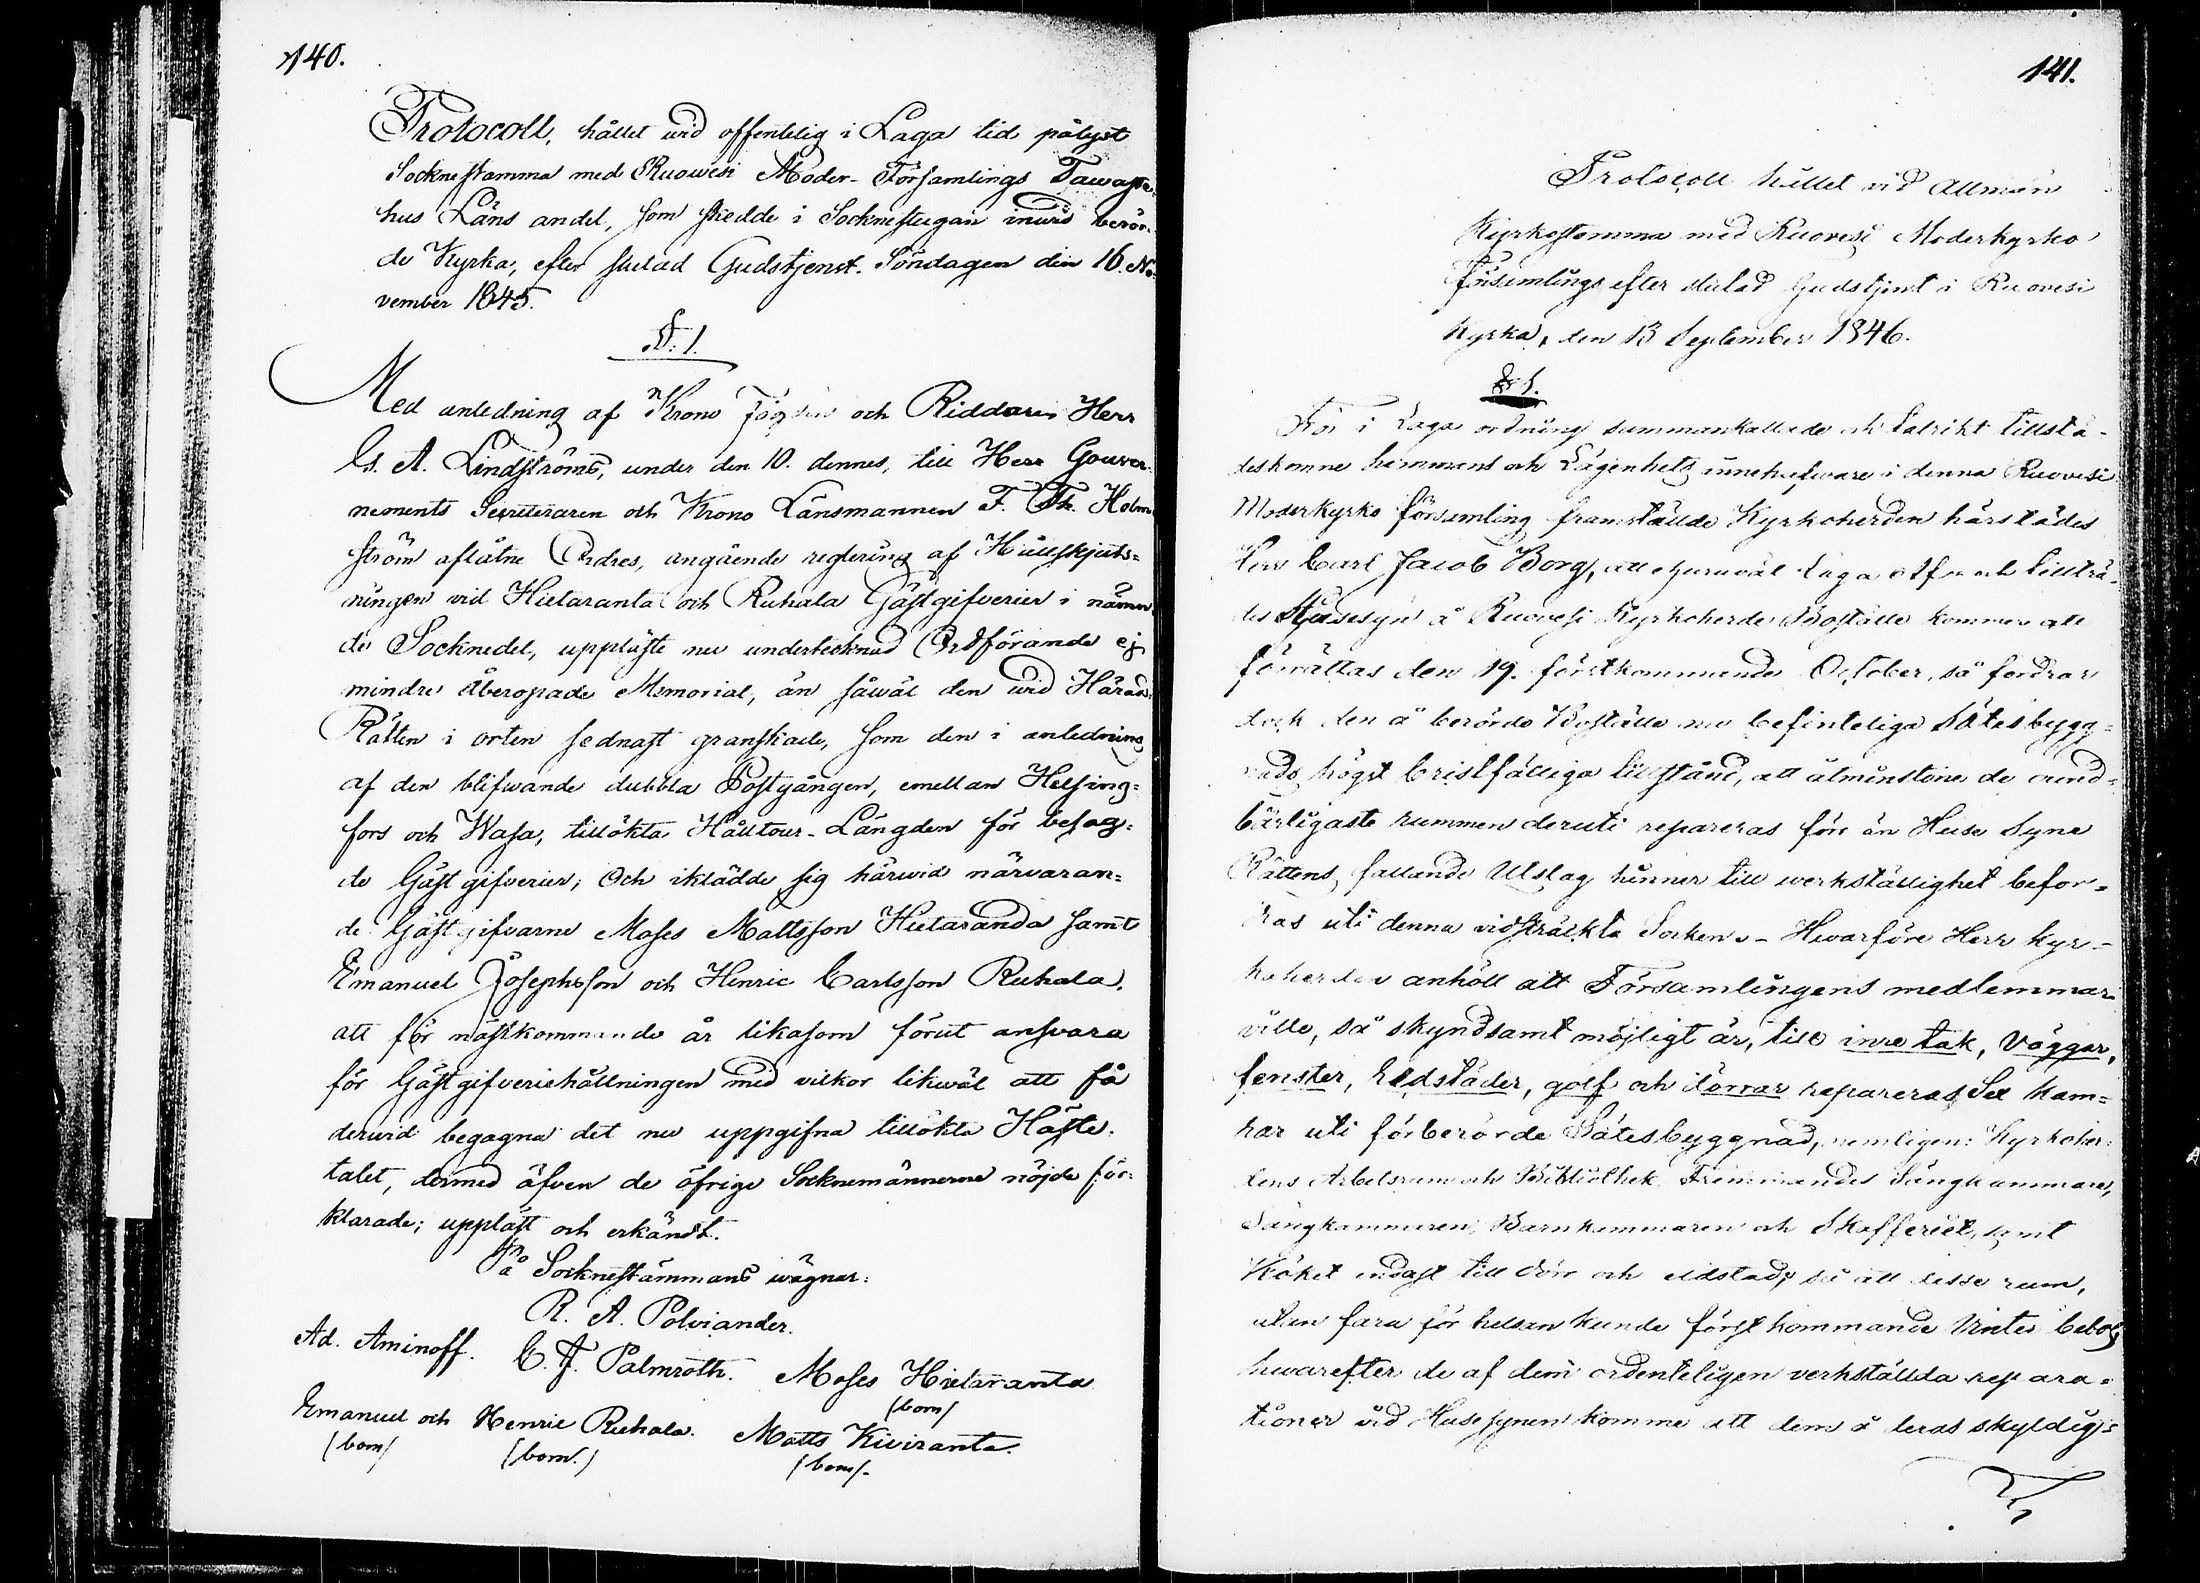 140.
Protocoll, hållet wid offentelig i Laga tid pålyst
Sockne stamma med Ruowesi Moder-Församlings Tawaste-
hus Läns andel, som skedde i Socknestugan inwid berör-
de Kyrka, efter slutad Gudstjenst. Söndagen den 16. No-
vember 1845.
§. 1.
Med anledning af Krono Fogden och Riddaren Herr
G. A. Lindströms, under den 10. dennes, till Herr Gouver-
nements Secreteraren och Krono Länsmannen F. Th. Holm
ström aflåtne Ordres, angående reglering af Hållskjuts-
ningen vid Hietaranta och Ruhala Gästgifverier i nämn
de Socknedel, uppläste nu undertecknad Ordförande ej
mindre åberopade Memorial, än såwäl den wid Härads
Rätten i orten sednast granskade, som den i anledning
af den blifwande dubbla Postgången, emellan Helsing-
fors och Wasa, tillökta Hålltour-Längden för besag-
de Gästgifverier; Och iklädde sig härwid närvaran-
de Gästgifvarne Moses Mattsson Hietaranda samt
Emanuel Josephsson och Henric Carlsson Ruhala,
att för nästkommande år likasom förut ansvara
för Gästgifveriehållningen med vilkor likwäl att få
derwid begagna det nu uppgifna tillökta Häste-
talet, dermed äfven de öfrige Socknemännerne nöjde för-
klarade; uppläst och erkändt.
På Socknestämmans wägnar:
R. A. Polviander.
Ad. Aminoff. C. F. Palmroth. Moses Hietaranta
(bom)
Emanuel och Henric Ruhala. Matts Kiviranta.
(bom) (bom.) (bom).
141.
Protocoll hållet vid allmän
Kyrkostämma med Ruovesi Moderkyrko
församlings efter slutad Gudstjenst i Ruovesi
Kyrka, den 13 September 1846.
§ 1.
För i Laga ordning sammankallade och talrikt tillstä-
deskomne hemmans och Lägenhets innehafvare i denna Ruovesi
Moderkyrko församling framställde Kyrkoherden härstädes
Herr Carl Jacob Borg, att ehuruväl laga Af och tillträ-
des Husesyn å Ruovesi Kyrkoherde Boställe kommer att
förrättas den 19. förstkommende October, så fordrar
dock den å berörde Boställe nu befinteliga Sätesbygg-
nads högst bristfälliga tillstånd, att åtminstone de ound-
bärligaste rummen deruti repareras förr än Huse Syne
Rättens fallande Utslag hinner till werkställighet befor-
dras uti denna vidsträckta Socken. - Hwarföre Herr Kyr-
koherden anhöll att Församlingens medlemmar
ville, så skyndsamt möjligt är, till inre tak, väggar,
fenster, Eldstäder, golf och dörrar reparera Sex kam-
rar uti förberörde Sätesbyggnad, nemligen: Kyrkoher-
dens Arbetsrum och Bibliothek, Främmandes Sängkammare,
Sängkammaren, Barnkammaren och Skafferiet, samt
Köket endast till dörr och eldstad, så att desse rum,
utan fara för helsan kunde först kommande Vinter bebos
hwarefter de af dem ordenteligen verkställda repara-
tioner vid Husesynen komme att dem å deras skyldig-